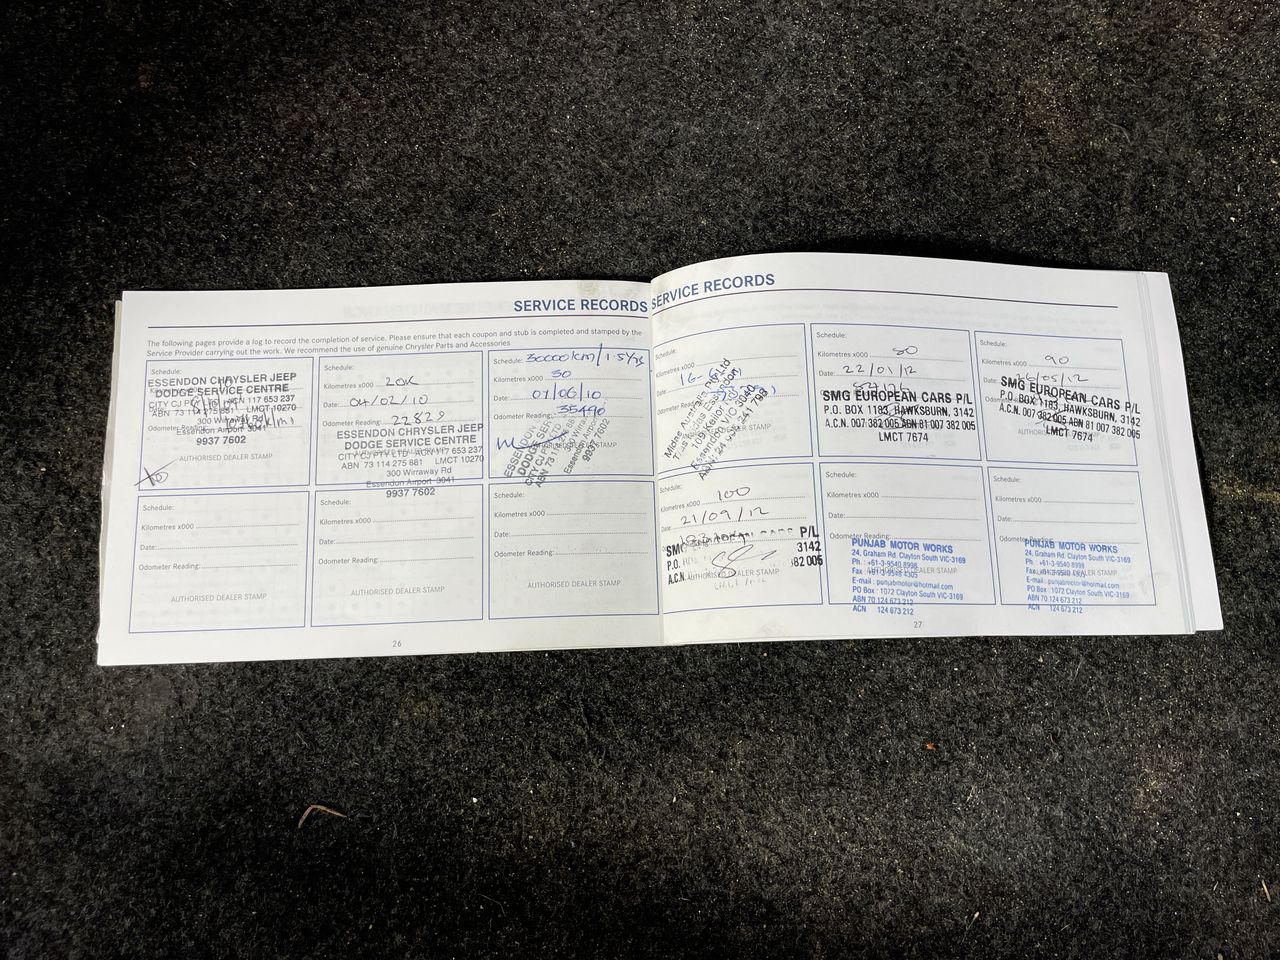 SERVICE RECORDS
The following pages provide a log to record the completion of service. Please ensure that each coupon and stub is completed and stamped by the
Service Provider carrying out the work. We recommend the use of genuine Chrysler Parts and Accessories
Schedule:
ESSENDON CHRYSLER JEEP
DODGE SERVICE CENTRE
CITY CJ PTY LTD ACN 117 653 237
ABN 73 114 275 881 LMCT 10270
300 Wirraway Rd
Essendon Airport 3041
9937 7602
AUTHORISED DEALER STAMP
Schedule:
Kilometres x000 20K
Date: 04/02/10
Odometer Reading: 22829
ESSENDON CHRYSLER JEEP
DODGE SERVICE CENTRE
CITY CJ PTY LTD ACN 117 653 237
ABN 73 114 275 881 LMCT 10270
300 Wirraway Rd
Essendon Airport 3041
9937 7602
Schedule: 30000km/1.5Yrs
Kilometres x000 30
Date: 07/06/10
Odometer Reading: 35490
ESSENDON
DODGE SER
CITY CJ P
ABN 73 11
300 Wirraway
Essendon Airport
9937 7602
Schedule:
Kilometres x000
Date:
Odometer Reading:
AUTHORISED DEALER STAMP
Schedule:
Kilometres x000
Date:
Odometer Reading:
AUTHORISED DEALER STAMP
Schedule:
Kilometres x000
Date:
Odometer Reading:
AUTHORISED DEALER STAMP
26
SERVICE RECORDS
Schedule:
Kilometres x000
Date:
Midas Australia Pty Ltd
Essendon
Essendon VIC 3040
Schedule:
Kilometres x000 80
Date: 22/01/12
SMG EUROPEAN CARS P/L
P.O. BOX 1183, HAWKSBURN, 3142
A.C.N. 007 382 005 ABN 81 007 382 005
LMCT 7674
Schedule:
Kilometres x000 90
Date: /05/12
SMG EUROPEAN CARS P/L
P.O. BOX 1183, HAWKSBURN, 3142
A.C.N. 007 382 005 ABN 81 007 382 005
LMCT 7674
AUTHORISED DEALER STAMP
Schedule:
Kilometres x000 100
Date: 21/09/12
SMG P/L
P.O. 3142
A.C.N. 382 005
AUTHORISED DEALER STAMP
Schedule:
Kilometres x000
Date:
Odometer Reading:
PUNJAB MOTOR WORKS
24, Graham Rd. Clayton South VIC-3169
Ph : +61-3-9540 8998
Fax : +61-3-9548 4305
E-mail : punjabmotor@hotmail.com
PO Box : 1072 Clayton South VIC-3169
ABN 70 124 673 212
ACN 124 673 212
Schedule:
Kilometres x000
Date:
PUNJAB MOTOR WORKS
24, Graham Rd. Clayton South VIC-3169
Ph : +61-3-9540 8998
Fax : +61-3-9548 4305
E-mail : punjabmotor@hotmail.com
PO Box : 1072 Clayton South VIC-3169
ABN 70 124 673 212
ACN 124 673 212
27